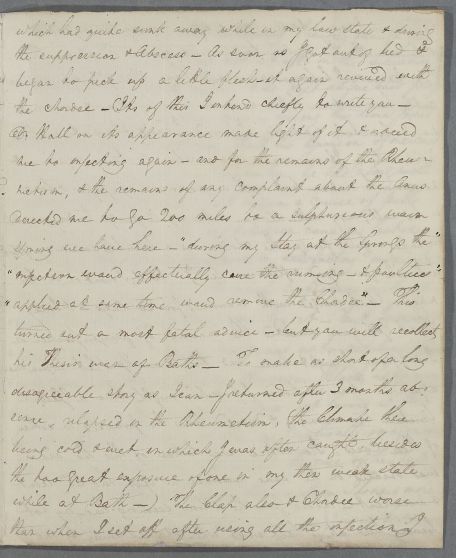 which had quite sunk away while in my low state & during
the suppression & Abscess – As soon as I got out of bed &
began to pick up a little flesh – it again revived with
the chordee – Tis of this I intend chiefly to write you –
Dr Hall on its appearance made light of it & ordered
me to injecting again – and for the remains of the Rheu-
matism, & the remains of any complaint about the Anus
directed me to go 200 miles to a sulphureous warm
spring we have here – "during my stay at the Springs the"
"injection would effectually cure the running – & poultices"
"applied at same time would remove the Chordee" – This
turned out a most fatal advice – but you will recollect
his Thesis was of Baths – To make as short of a long
disagreeable story as I can – I returned after 3 months ab-
sence, relapsed in the Rheumatism, (the Climate there
being cold & wet, in which I was often caught, besides
the too great exposure of one in my then weak state
while at Bath –) The Clap also & Chordee worse
than when I set off after using all the injection I